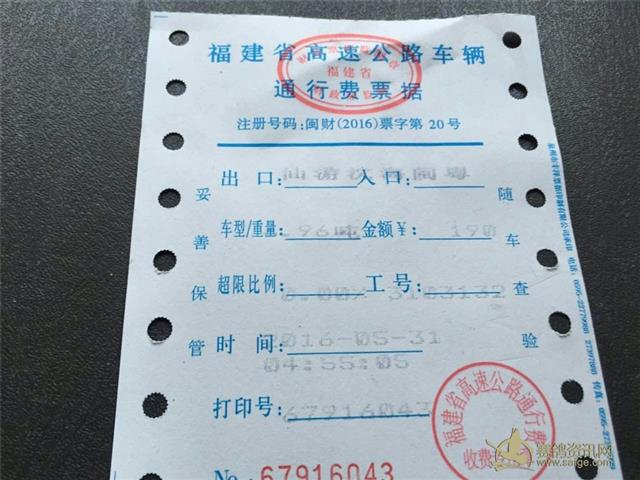 福建省高速公路车辆
通行费票据
福建省
注册号码:闽财(2016)票字第 20 号
出口: 仙游 入口: 闽粤
车型/重量: 96吨 金额¥: 190
超限比例: 0.00% 工号: 3103132
时间: 2016-05-31
04:55:05
打印号: 67916043
No 67916043
妥善保管
随车查验
福建省高速公路通行费
收费
赛鸽资讯网
www.saige.com